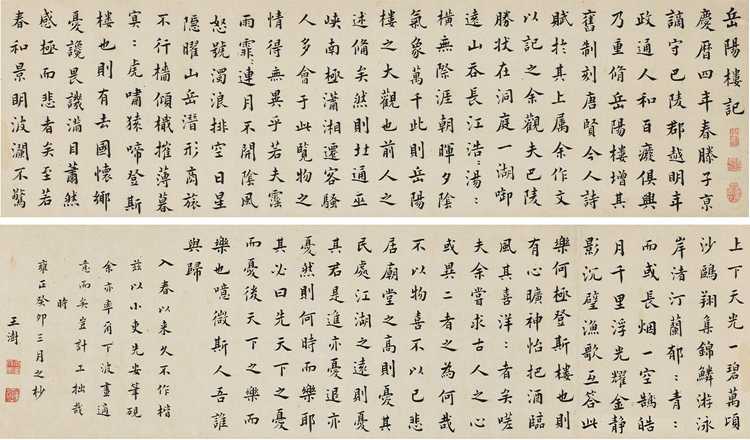 岳陽樓記
慶曆四年春滕子京
謫守巴陵郡越明年
政通人和百癈俱興
乃重脩岳陽樓增其
舊制刻唐賢今人詩
賦於其上属余作文
以記之余觀夫巴陵
勝狀在洞庭一湖啣
遠山吞長江浩:湯:
橫無際涯朝暉夕陰
氣象萬千此則岳陽
樓之大觀也前人之
述備矣然則北通巫
峽南極瀟湘遷客騷
人多會于此覽物之
情得無異乎若夫霪
雨霏:連月不開陰風
怒號濁浪排空日星
隱曜山岳潛形商旅
不行檣傾檝摧薄暮
冥:虎嘯猿啼登斯
樓也則有去國懷鄉
憂讒畏譏滿目蕭然
感極而悲者矣至若
春和景明波瀾不驚
上下天光一碧萬頃
沙鷗翔集錦鱗游泳
岸渚汀蘭郁:青:
而或長烟一空皓
月千里浮光耀金静
影沉璧漁歌互答此
樂何極登斯樓也則
有心曠神怡把酒臨
風其喜洋:者矣嗟
夫余嘗求古人之心
或異二者之為何哉
不以物喜不以己悲
居廟堂之高則憂其
民處江湖之遠則憂
其君是進亦憂退亦
憂然則何時而樂耶
其必曰先天下之憂
而憂後天下之樂而
樂也噫微斯人吾誰
與歸
入春以来久不作楷
茲以小史先安筆硯
余亦率下波畫適
意而矣豈計工拙哉
時
雍正癸卯三月之杪
王澍